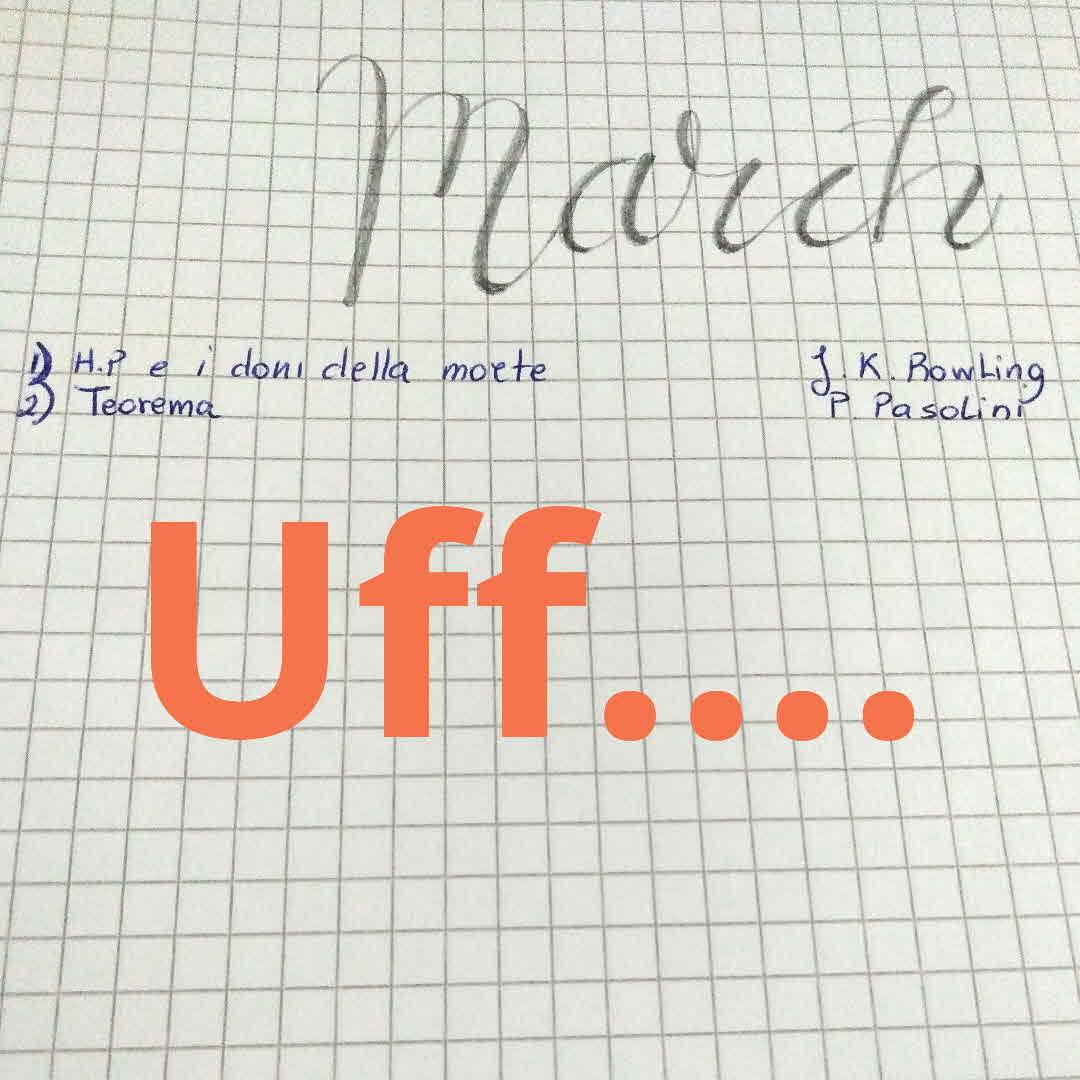 March
1) H.P e i doni della morte J. K. Rowling
2) Teorema P. Pasolini
Uff....